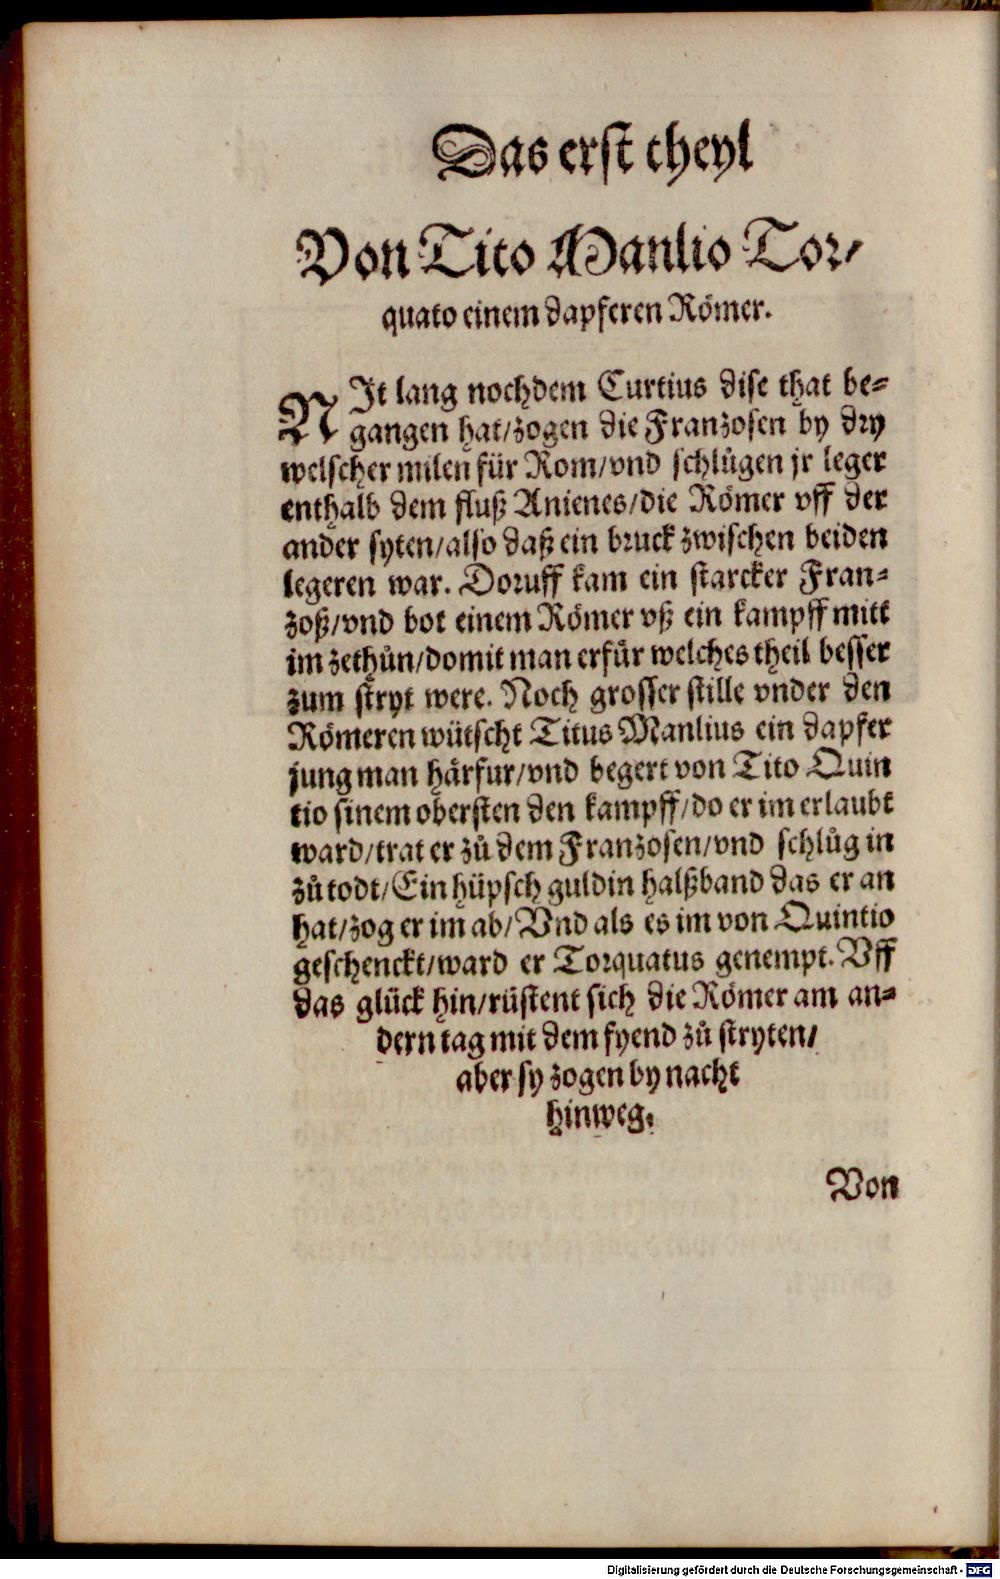 Das erst theyl
Von Tito Manlio Tor/
quato einem dapferen Römer.
NIt lang nochdem Curtius dise that be=
gangen hat/zogen die Franzosen by dry
welscher milen für Rom/vnd schlůgen jr leger
enthalb dem fluß Anienes/die Römer vff der
ander syten/also daß ein bruck zwischen beiden
legeren war. Doruff kam ein starcker Fran=
zoß/vnd bot einem Römer vß ein kampff mitt
im zethůn/domit man erfůr welches theil besser
zum stryt were. Noch grosser stille vnder den
Römeren wütscht Titus Manlius ein dapfer
jung man härfur/vnd begert von Tito Quin
tio sinem obersten den kampff/do er im erlaubt
ward/trat er zů dem Franzosen/vnd schlůg in
zů todt/Ein hüpsch guldin halßband das er an
hat/zog er im ab/Vnd als es im von Quintio
geschenckt/ward er Torquatus genempt. Vff
das glück hin/rüstent sich die Römer am an=
dern tag mit dem fyend zů stryten/
aber sy zogen by nacht
hinweg.
Von
Digitalisierung gefördert durch die Deutsche Forschungsgemeinschaft - DFG